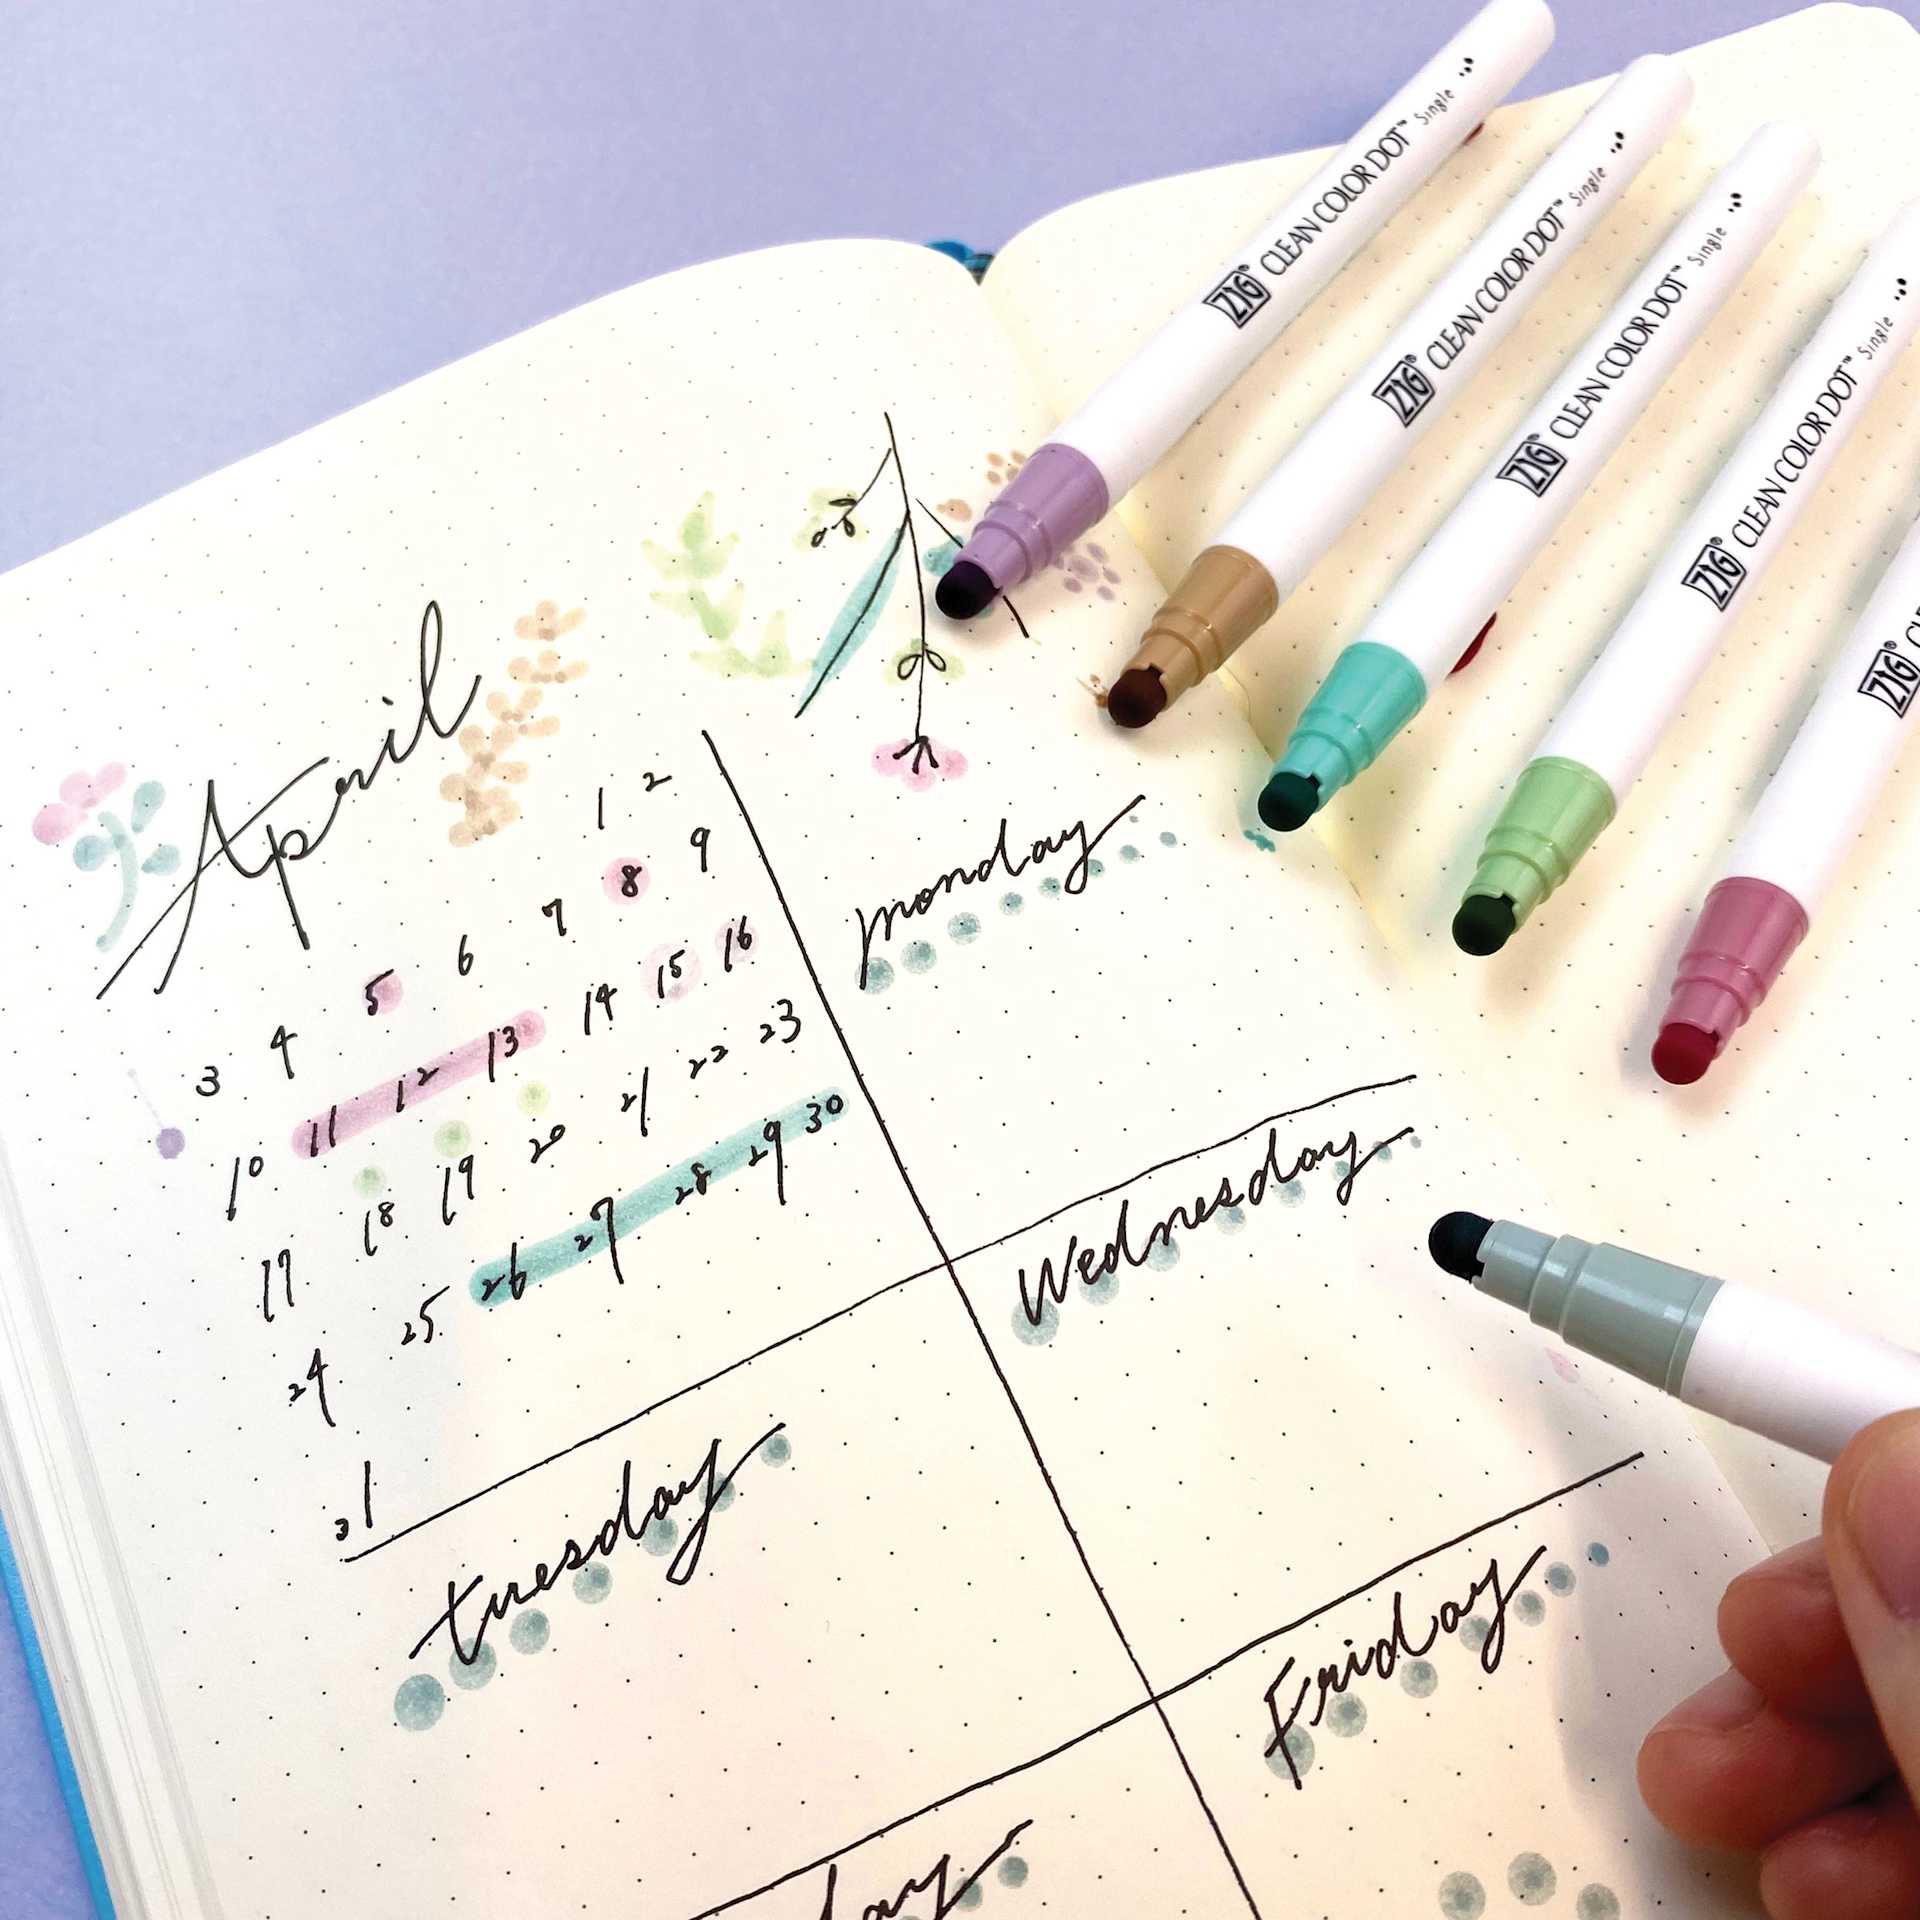 ZIG® CLEAN COLOR DOT™ Single
ZIG® CLEAN COLOR DOT™ Single
ZIG® CLEAN COLOR DOT™ Single
ZIG® CLEAN COLOR DOT™ Single
ZIG®
April
1 2
3 4 5 6 7 8 9
10 11 12 13 14 15 16
17 18 19 20 21 22 23
24 25 26 27 28 29 30
31
monday
Wednesday
tuesday
Friday